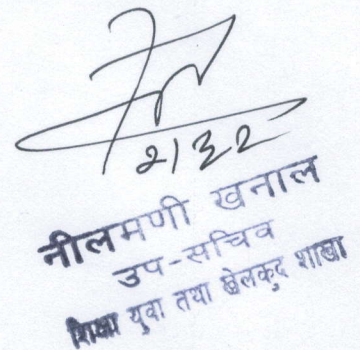 २/३२
नीलमणी खनाल
उप-सचिव
शिक्षा युवा तथा खेलकुद शाखा